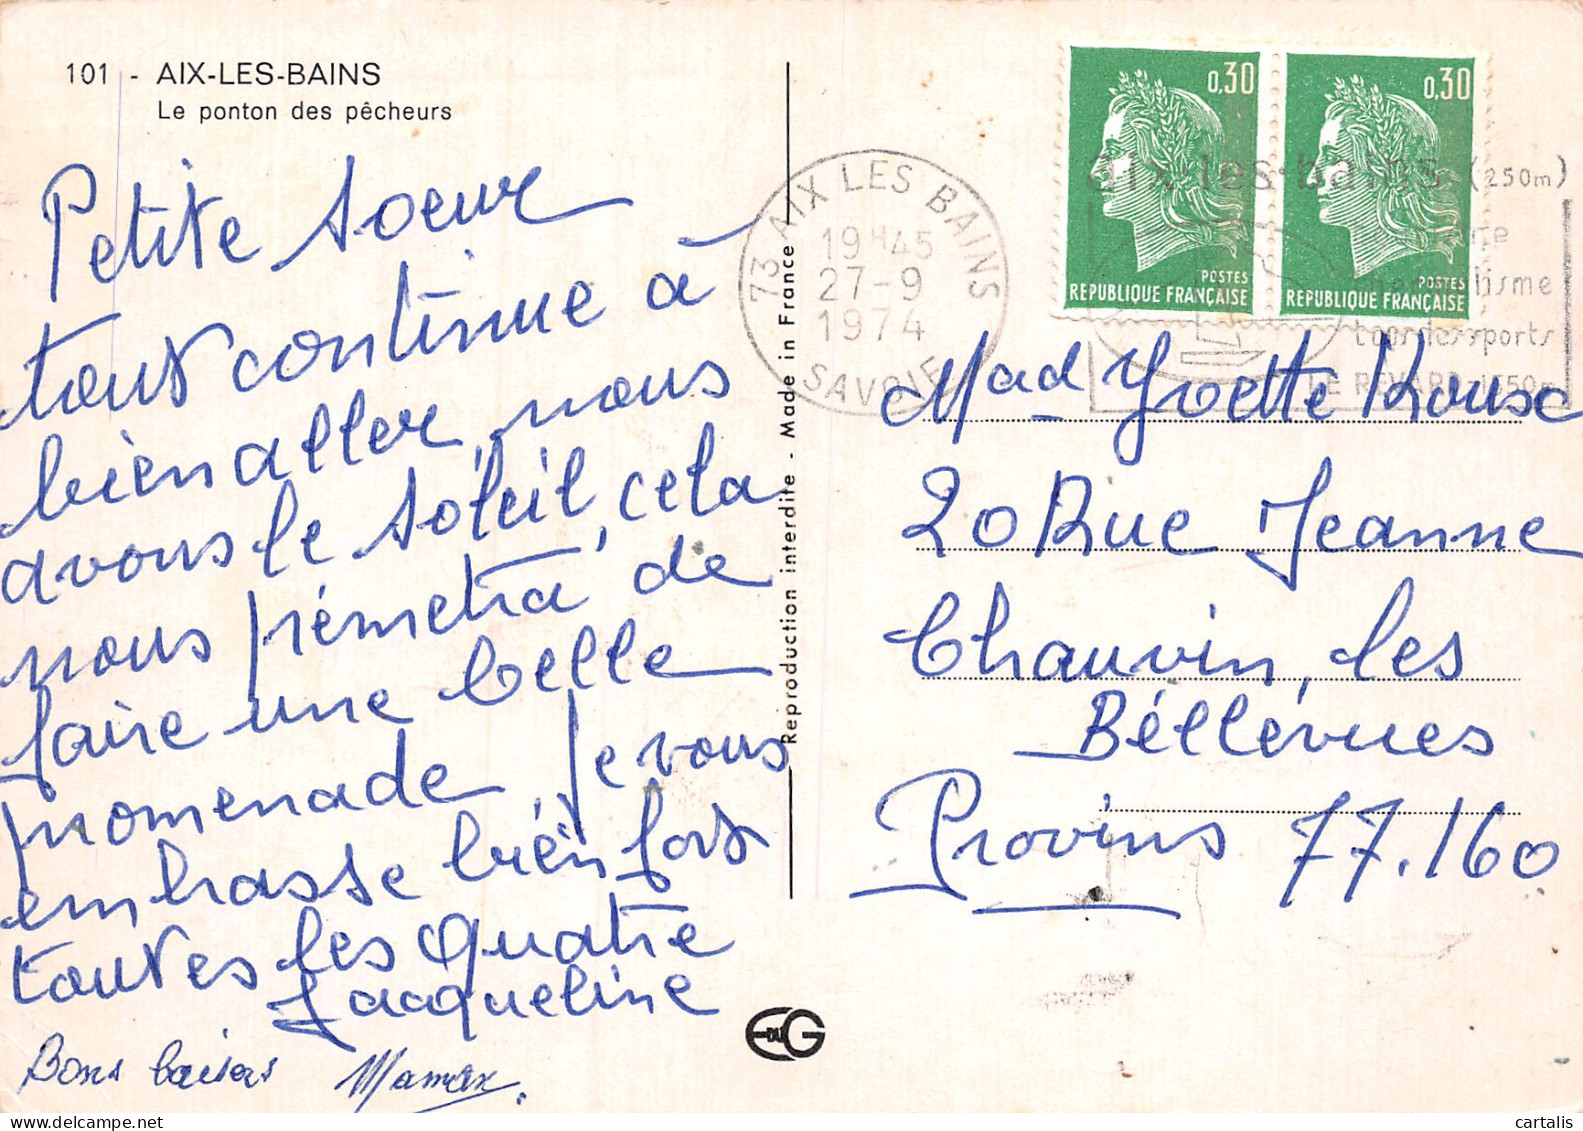 101 - AIX-LES-BAINS
Le ponton des pêcheurs
Petite soeur
tout continue à
bien aller, nous
avons le soleil, cela
nous pérmetra de
faire une belle
promenade je vous
embrasse bien fort
toutes les quatre
Jacqueline
Bons baisers Maman
Reproduction interdite - Made in France
73 AIX LES BAINS
19 H 45
27-9
1974
SAVOIE
0,30
POSTES
REPUBLIQUE FRANÇAISE
0,30
POSTES
REPUBLIQUE FRANÇAISE
aix-les-bains (250m)
tous les sports
LE REVARD 1550m
Mad Yvette
20 Rue Jeanne
Chauvin, les
Béllévues
Provins 77.160
EDUG
cartalis